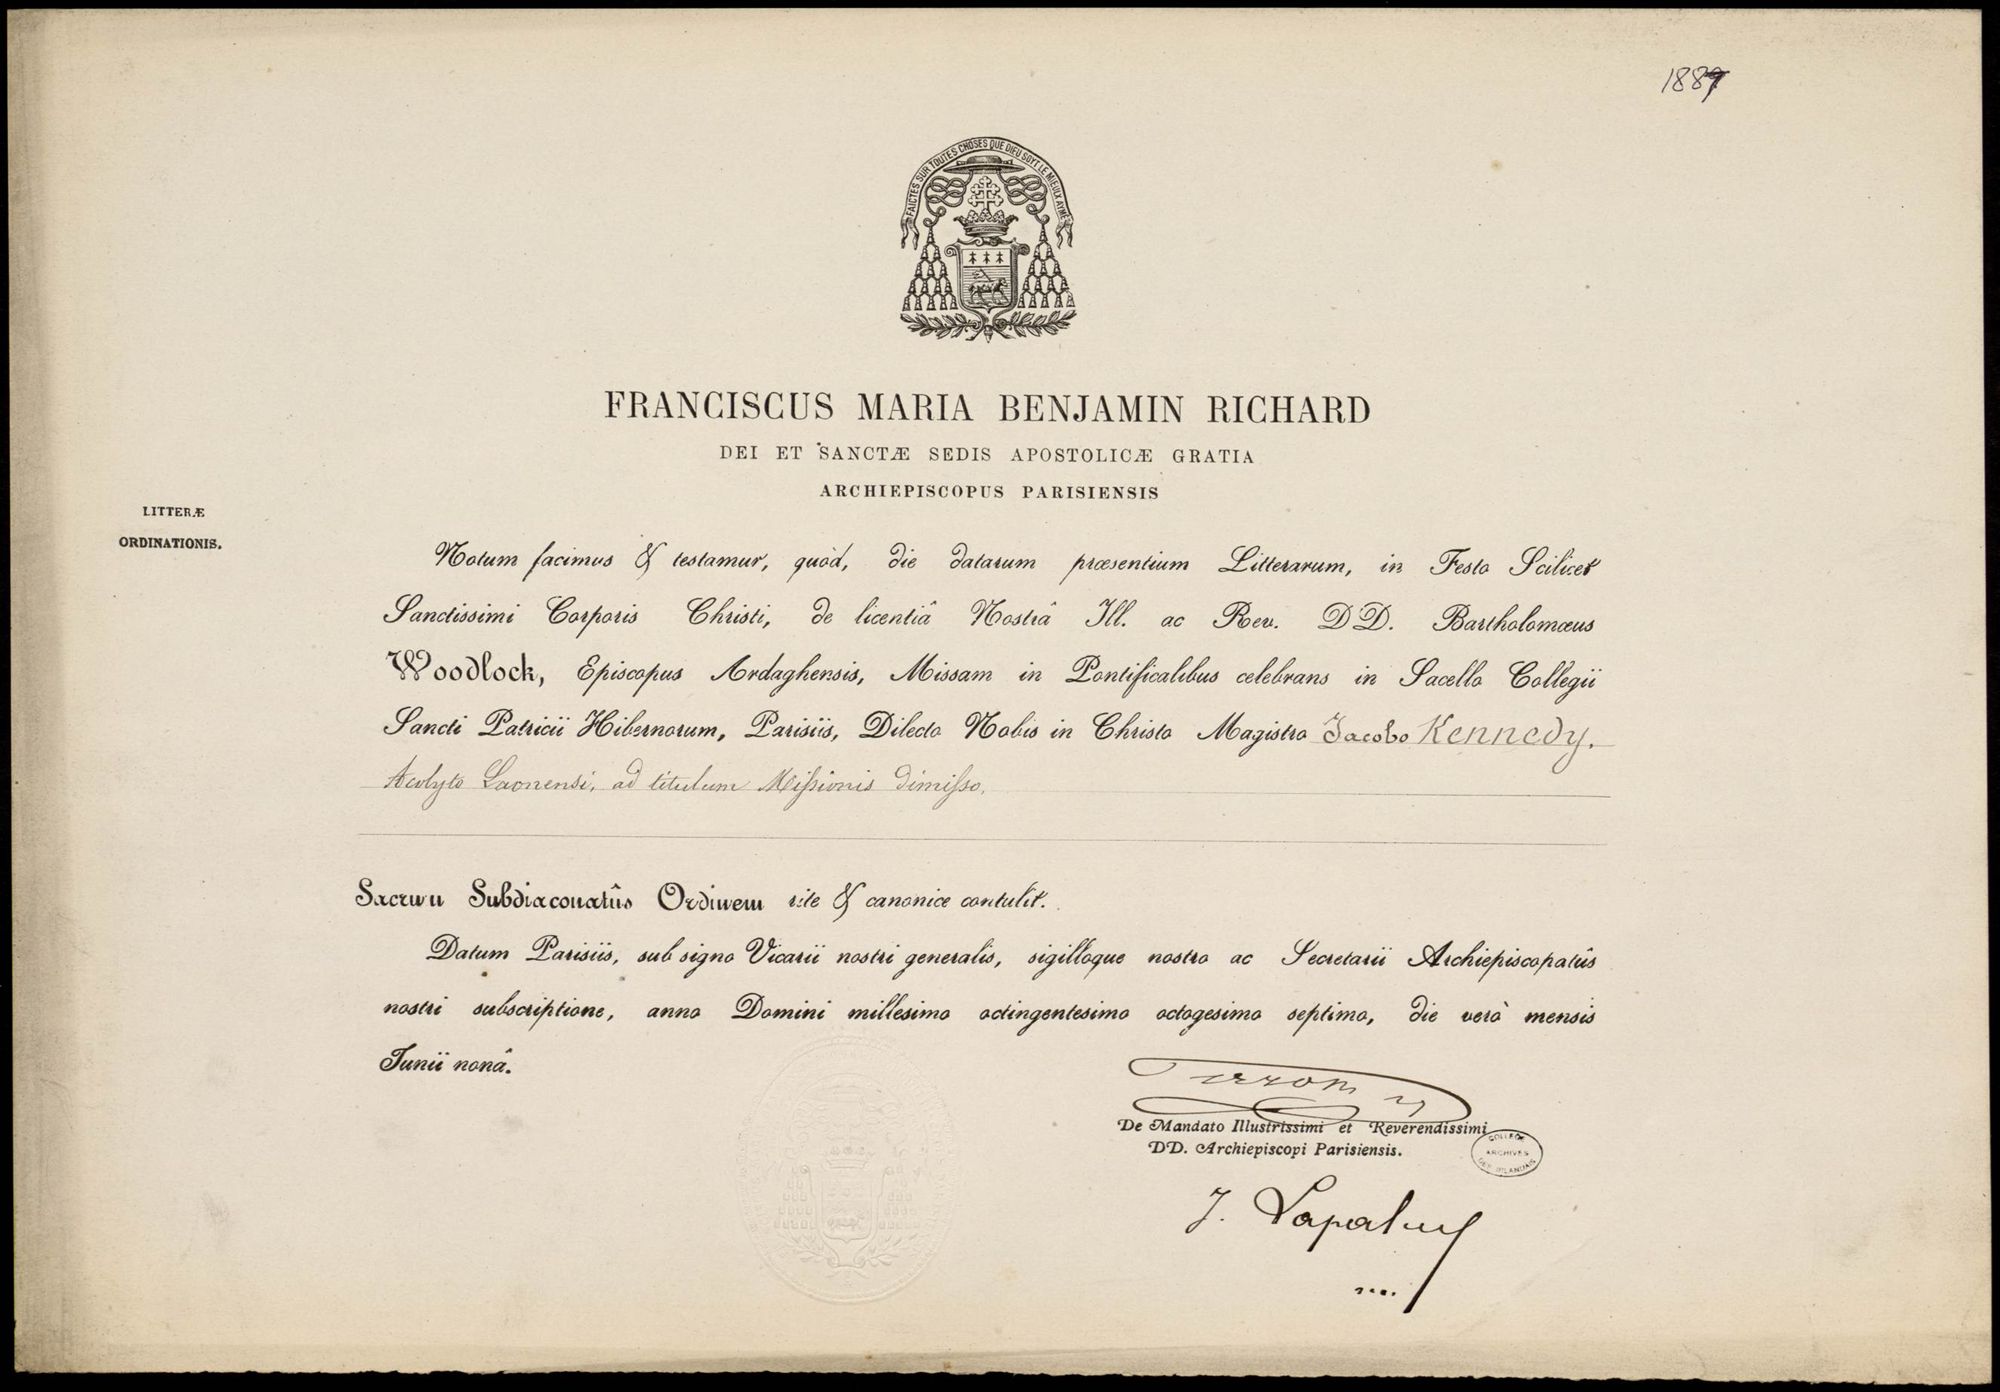 1887
FAICTES SUR TOUTES CHOSES QUE DIEU SOYT LE MIEULX AYMÉ
FRANCISCUS MARIA BENJAMIN RICHARD
DEI ET SANCTÆ SEDIS APOSTOLICÆ GRATIA
ARCHIEPISCOPUS PARISIENSIS
LITTERÆ
ORDINATIONIS.
Notum facimus & testamur, quòd, die datarum præsentium Litterarum, in Festo Scilicet
Sanctissimi Corporis Christi, de licentiâ Nostrâ Ill. ac Rev. DD. Bartholomœus
Woodlock, Episcopus Ardaghensis, Missam in Pontificalibus celebrans in Sacello Collegii
Sancti Patricii Hibernorum, Parisiis, Dilecto Nobis in Christo Magistro Jacobo Kennedy,
Acolyto Laonensi, ad titulum Missionis dimisso,
Sacrum Subdiaconatûs Ordinem rite & canonice contulit.
Datum Parisiis, sub signo Vicarii nostri generalis, sigilloque nostro ac Secretarii Archiepiscopatûs
nostri subscriptione, anno Domini millesimo octingentesimo octogesimo septimo, die verò mensis
Junii nonâ.
De Mandato Illustrissimi et Reverendissimi
DD. Archiepiscopi Parisiensis.
COLLEGE
ARCHIVES
DES IRLANDAIS
J.